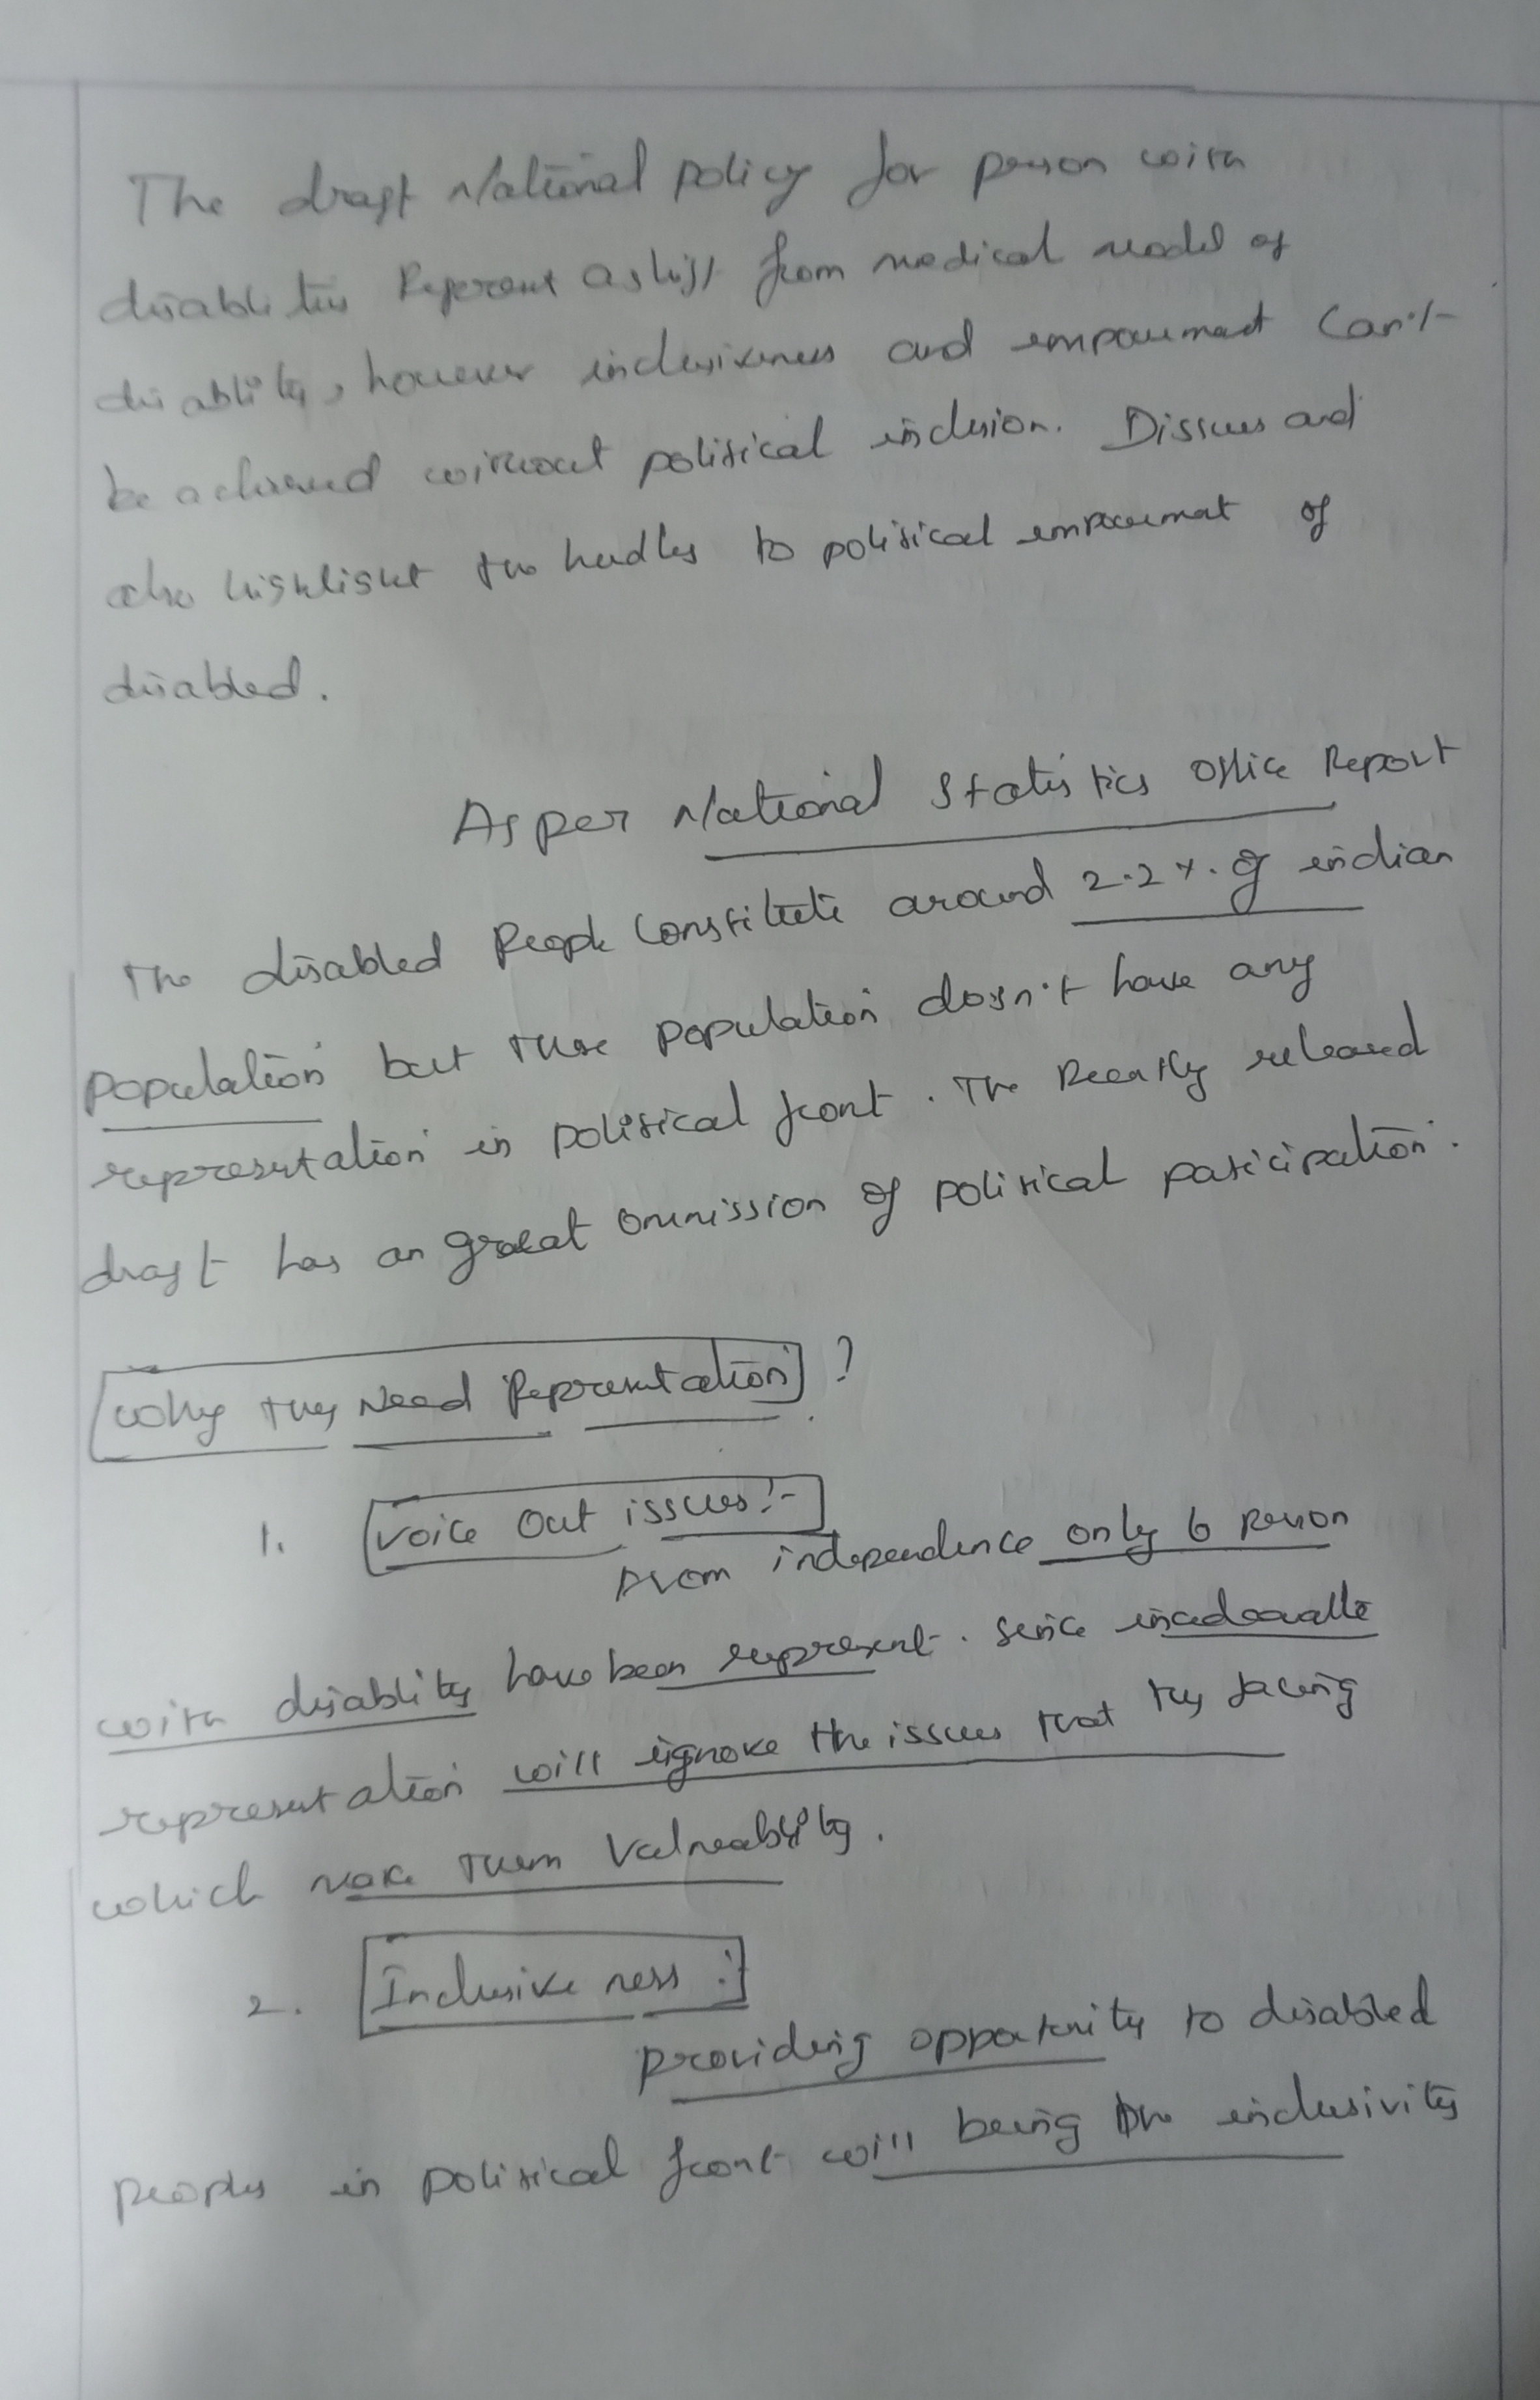 The draft National policy for person with
disablities Reperent a shift from medical model of
disablity, however inclusiveness and empowerment Can't
be achieved without political inclusion. Discuss and
also highlight the hudles to political empowerment of
disabled.
As per National Statistics Office Report
The disabled People Constitute around 2.2%. of indian
population but these population dosn't have any
representation in political front. The Recently released
draft has an great ommission of political participation.
Why they Need Representation?
1. Voice Out issues:-
From independence only 6 person
with disablity have been represent. Since inadequate
representation will ignore the issues that they facing
which make them Vulnerablity.
2. Inclusive ness :
providing opportunity to disabled
peoples in political front will being the inclusivity